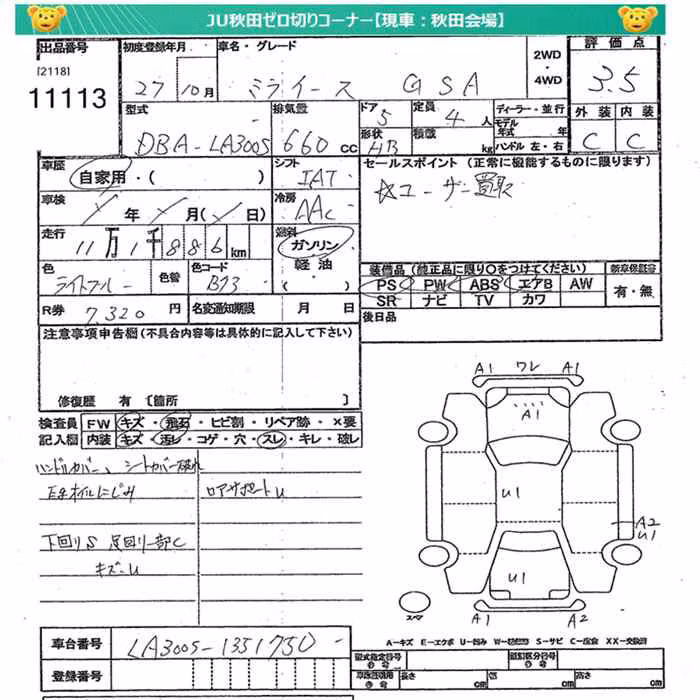 JU秋田ゼロ切りコーナー【現車：秋田会場】
出品番号 初度登録年月 車名・グレード 2WD・4WD 評価点
[2118]
11113
27年 10月 ミライース GSA 3.5
型式 排気量 ドア 定員 ディーラー・並行 外装 内装
5 4人 モデル年式 年
DBA-LA300S 660cc 形状 HB 積載 kg ハンドル 左・右 C C
車歴 シフト セールスポイント (正常に機能するものに限ります)
自家用・( ) IAT ☆ユーザー買取
車検 年 月( 日) 冷房 AAC
走行 11万1千886km 燃料 ガソリン・軽油・( )
装備品(純正品に限り○をつけてください) 新車保証書
色 ライトブルー 色替 色コード B73
PS PW ABS エアB AW 有・無
SR ナビ TV カワ
R券 7,320円 名変通知期限 月 日 後日品
注意事項申告欄(不具合内容等は具体的に記入して下さい)
修復歴 有 [箇所 ]
A1 ワレ A1
A1
検査員 FW キズ・飛石・ヒビ割・リペア跡・×要
記入欄 内装 キズ・汚レ・コゲ・穴・スレ・キレ・破レ
ハンドルカバー、シートカバー破れ
E/gオイルにじみ ロアサポートU
U1
A2
U1
下回りS 足回り一部C
キズ・U
U1
スペア
A1 A2
A-キズ E-エクボ U-凹み W-補修跡 S-サビ C-腐食 XX-交換済
車台番号 LA300S-1351750
型式指定番号 類別区分番号
登録番号
長さ cm 幅 cm 高さ cm